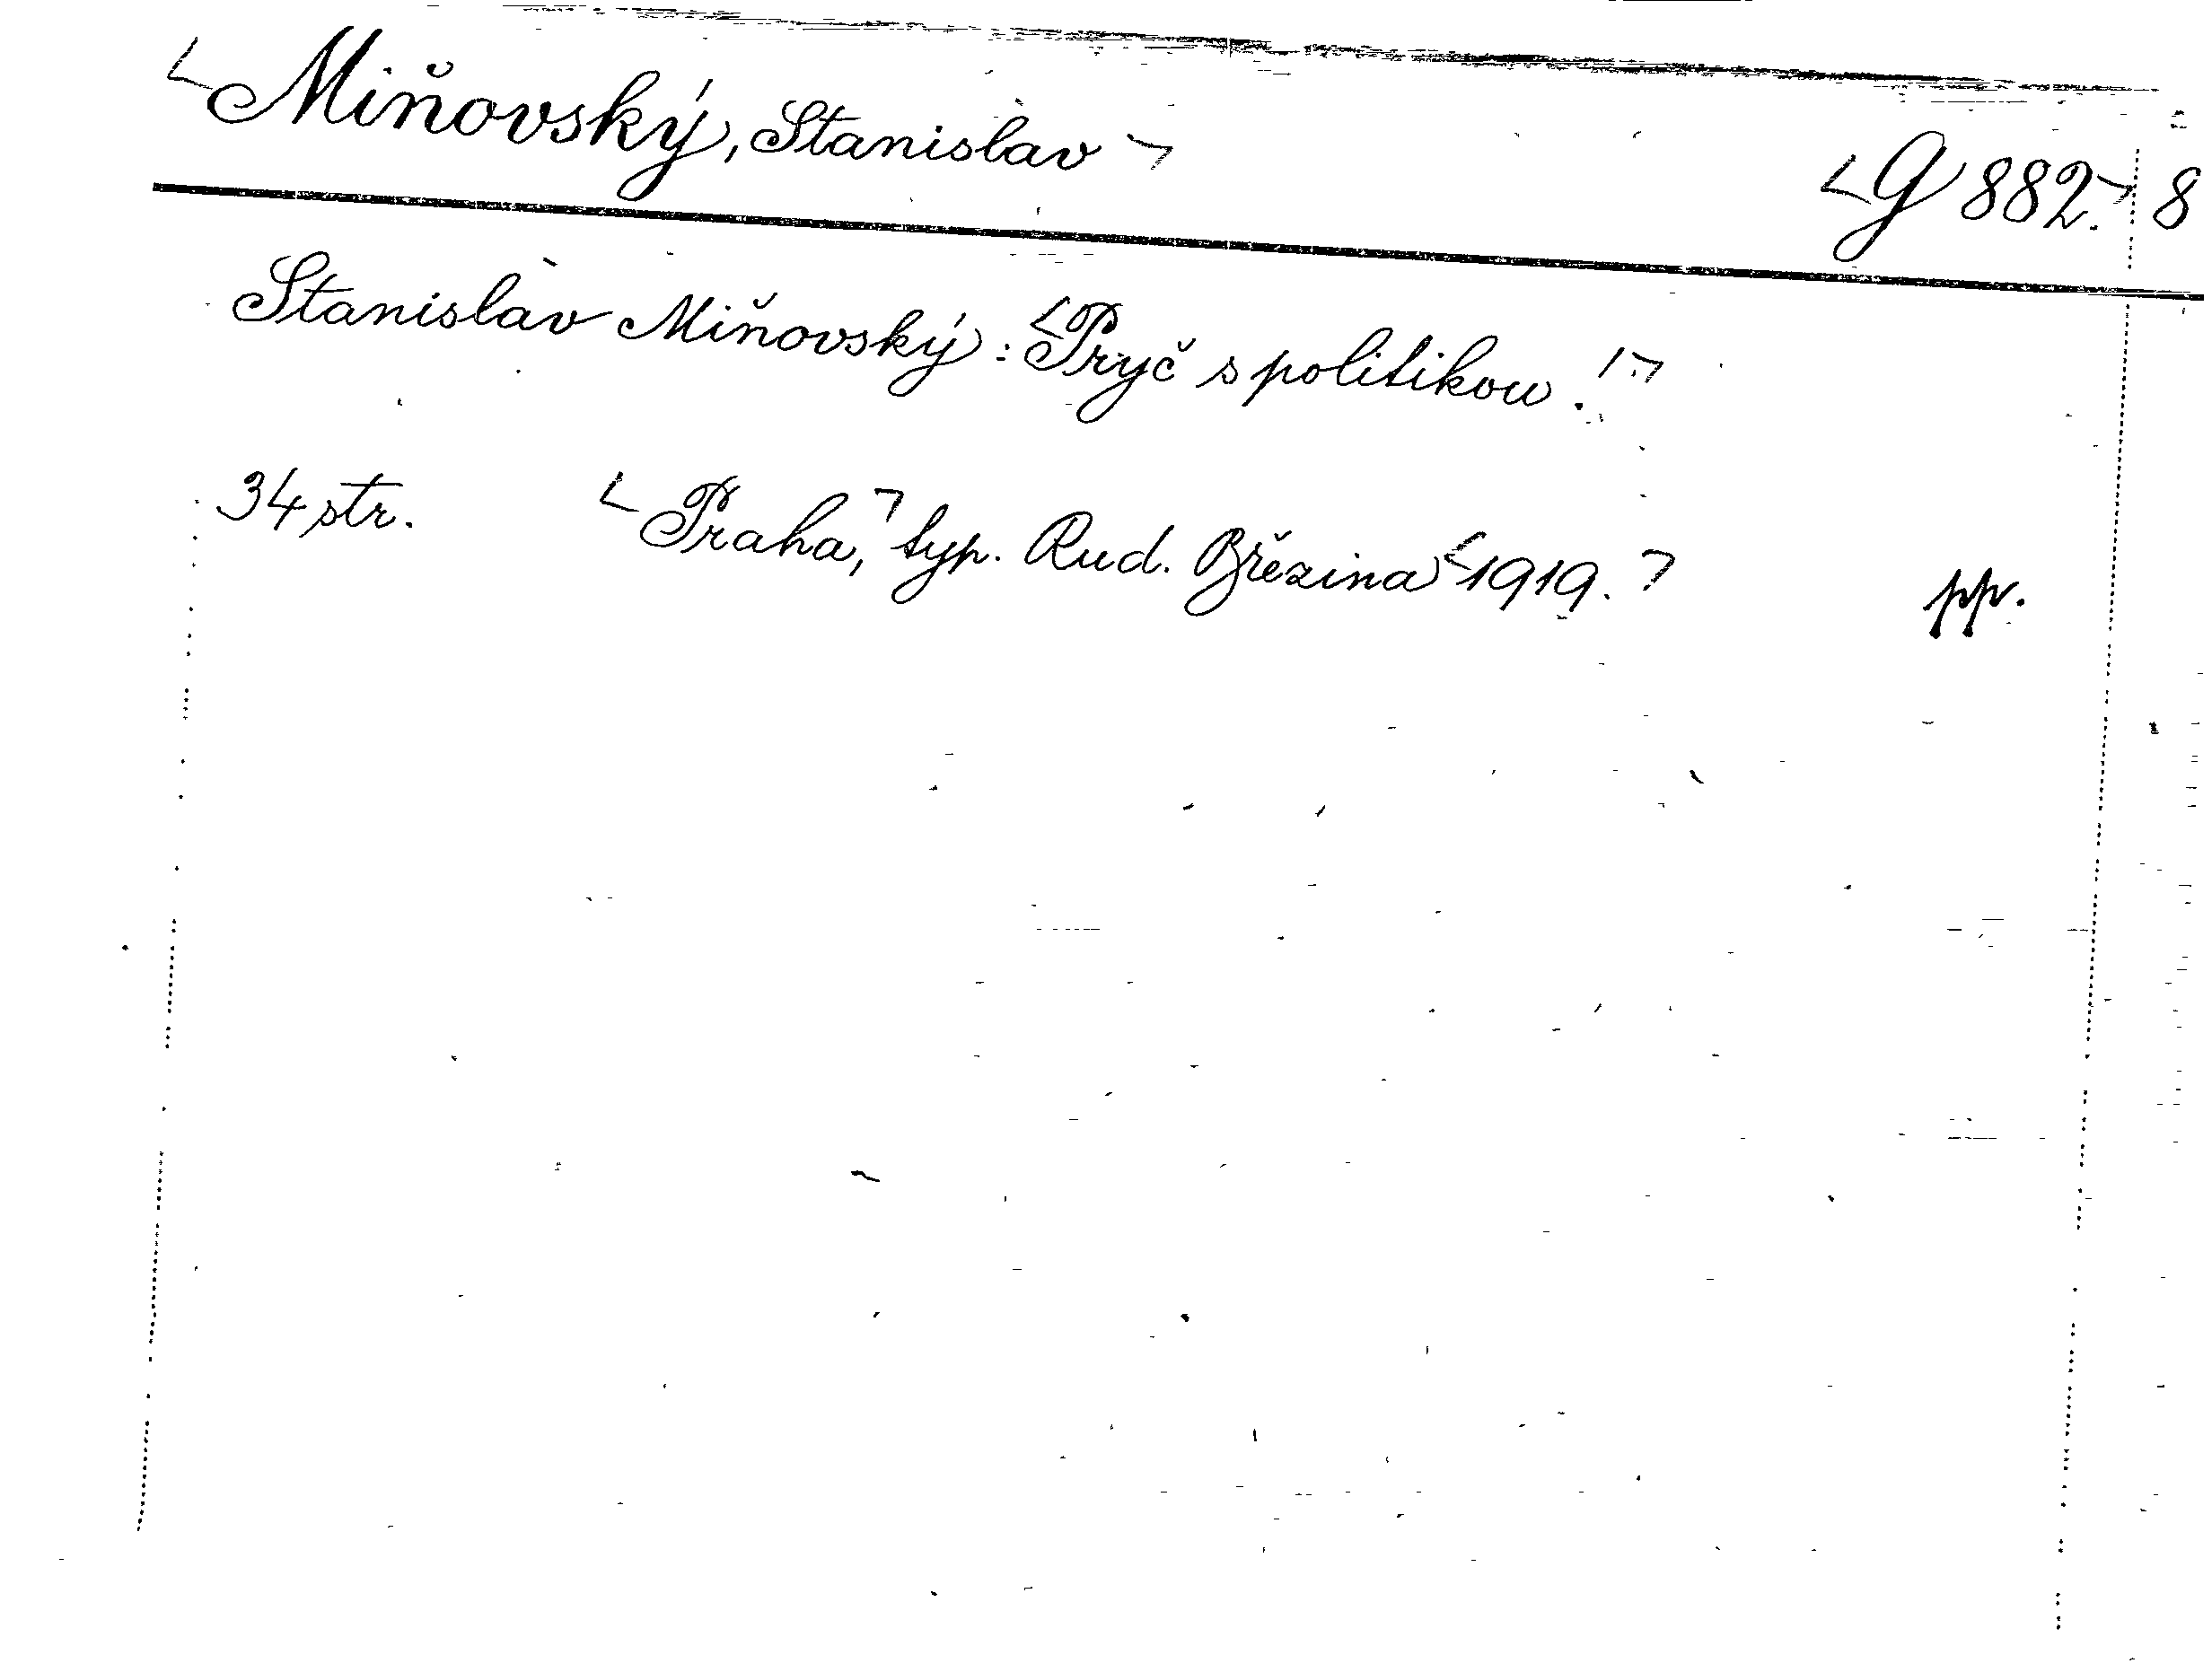 Miňovský, Stanislav
G 882. 8
Stanislav Miňovský: Pryč s politikou!
34 str. Praha, typ. Rud. Březina 1919. pp.